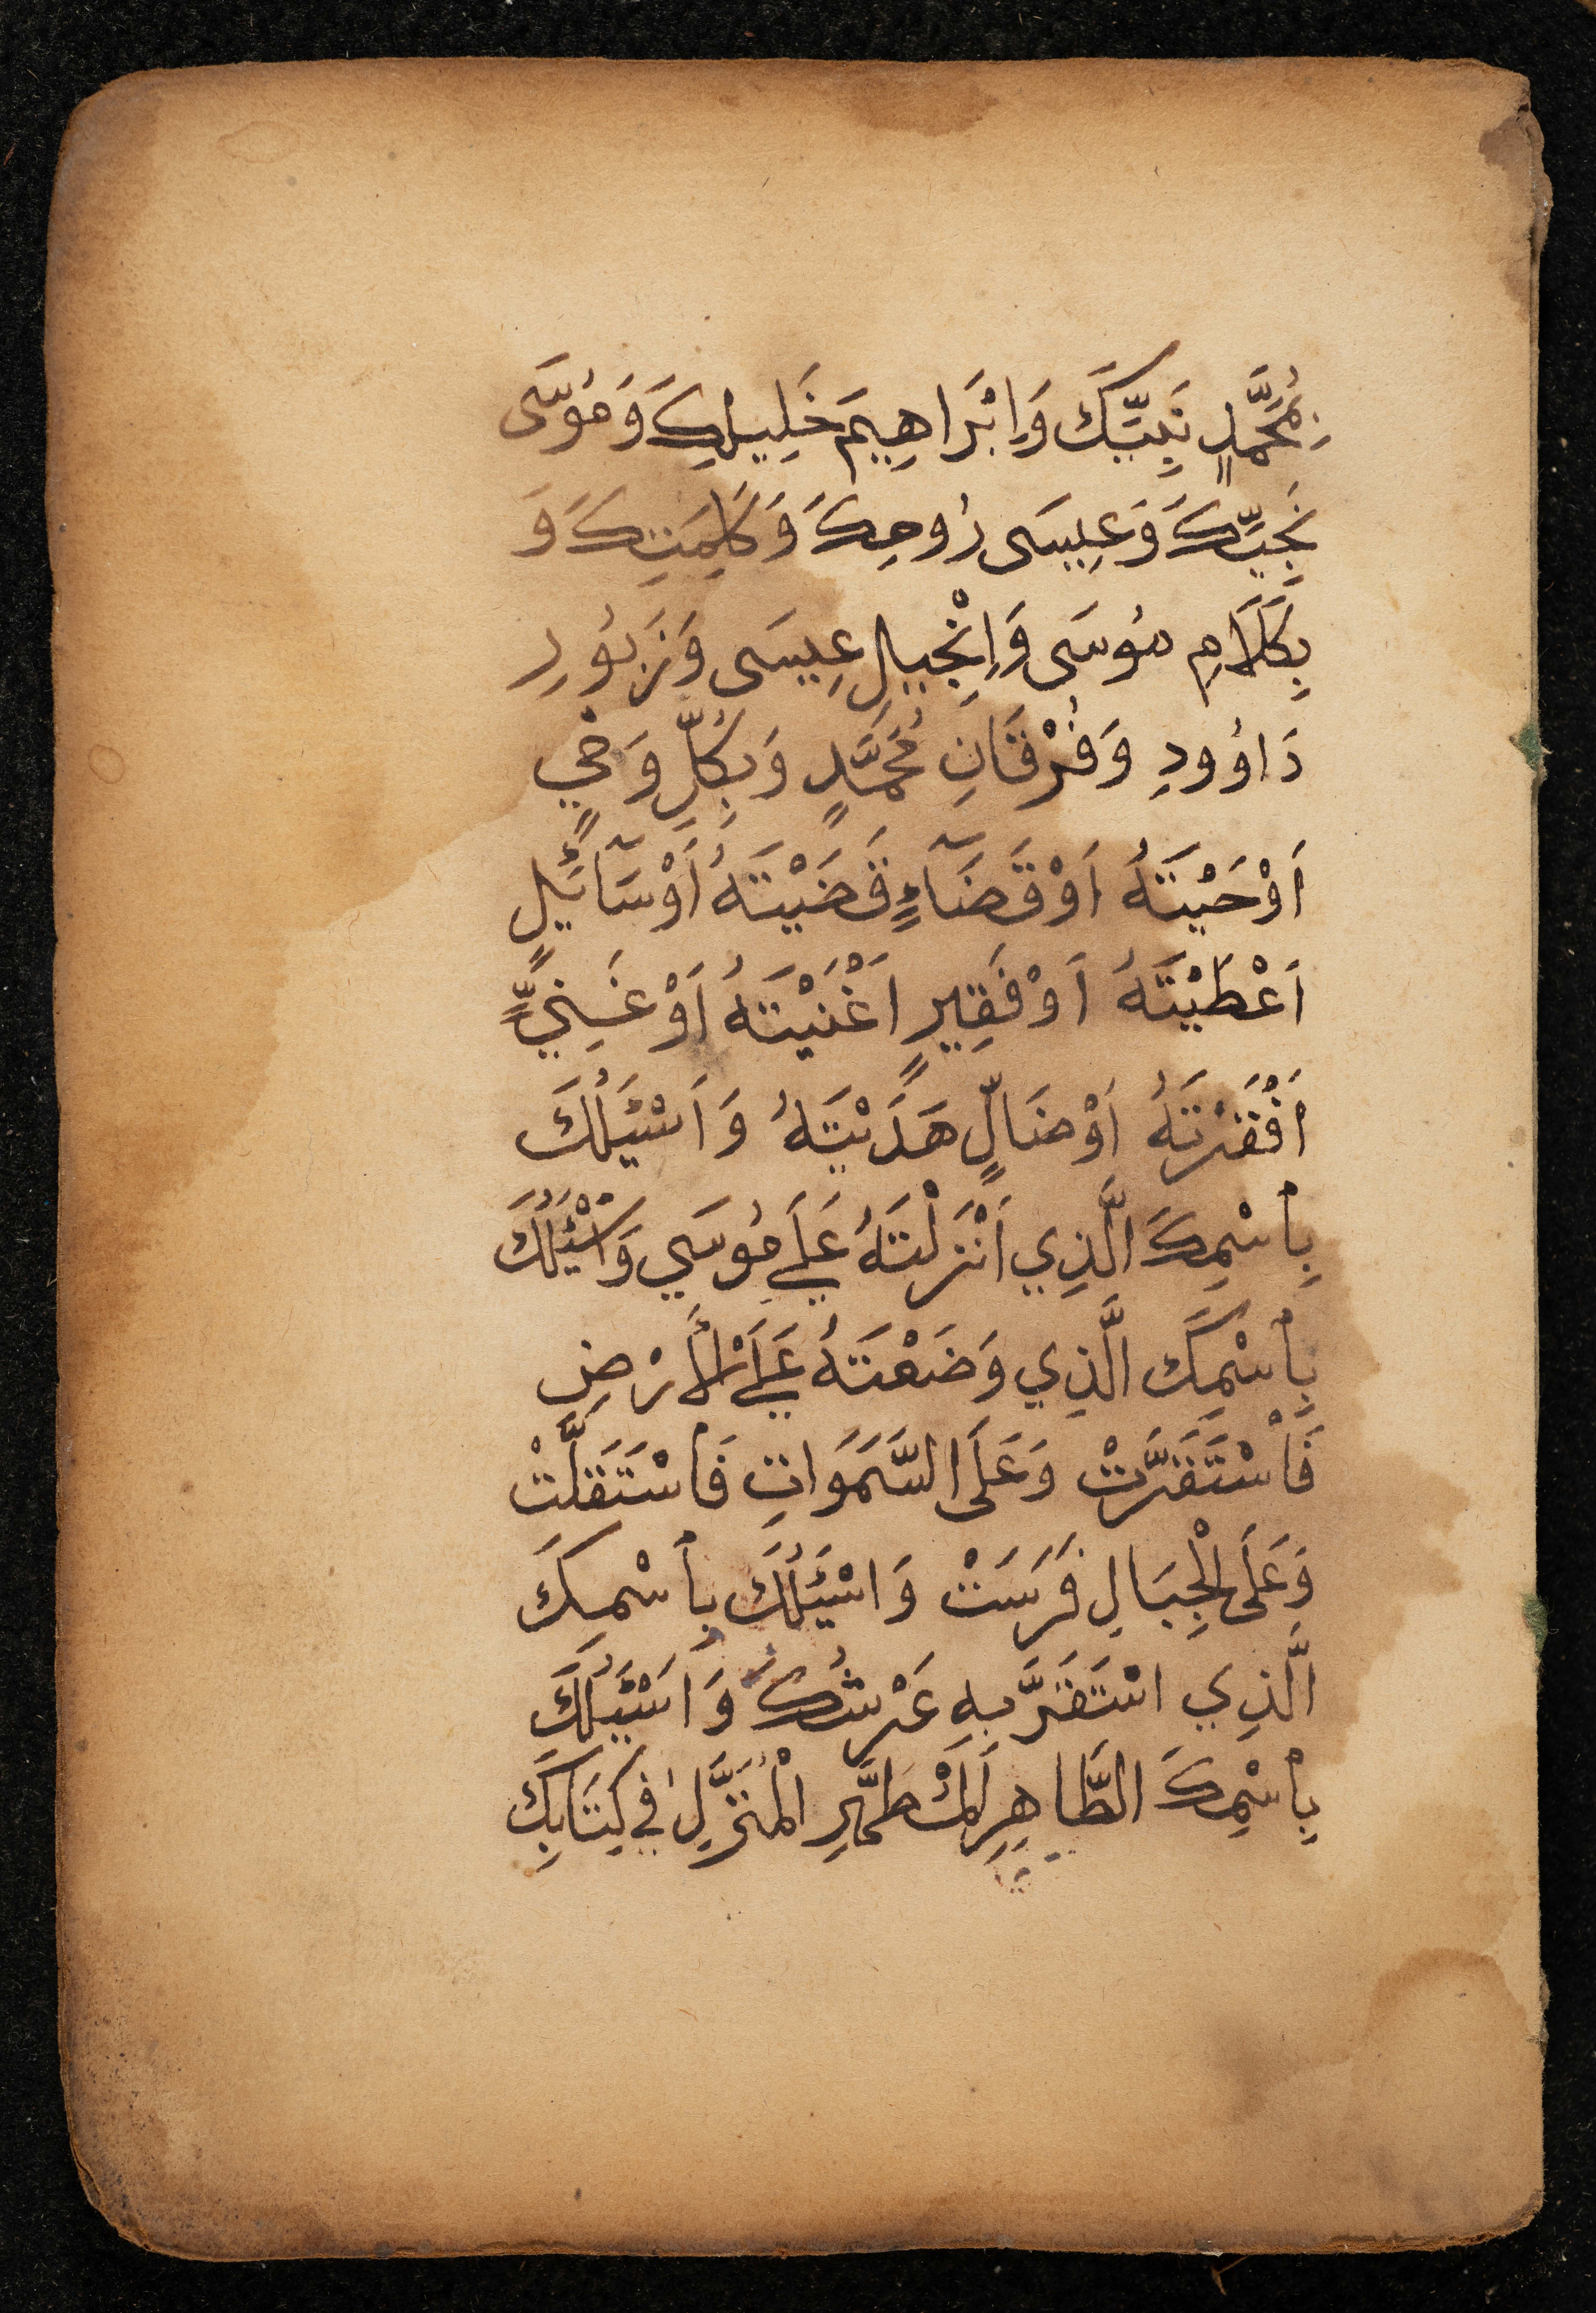 بِمُحَمَّدٍ نَبِيِّكَ وَاِبْرَاهِيمَ خَلِيلِكَ وَمُوسَى
نَجِيِّكَ وَعِيسَى رُوحِكَ وَكَلِمَتِكَ وَ
بِكَلَامِ مُوسَى وَاِنْجِيلِ عِيسَى وَزَبُورِ
دَاوُودِ وَفُرْقَانِ مُحَمَّدٍ وَبِكُلِّ وَحْيٍ
اَوْحَيْتَهُ اَوْ قَضَآءٍ قَضَيْتَهُ اَوْ سَآئِلٍ
اَعْطَيْتَهُ اَوْ فَقِيرٍ اَغْنَيْتَهُ اَوْ غَنِيٍّ
اَفْقَرْتَهُ اَوْ ضَالٍّ هَدَيْتَهُ وَاَسْئَلُكَ
بِاسْمِكَ الَّذِي اَنْزَلْتَهُ عَلَي مُوسَي وَاَسْئَلُكَ
بِاسْمِكَ الَّذِي وَضَعْتَهُ عَلَي الْأَرْضِ
فَاسْتَقَرَّتْ وَعَلَى السَّمَوَاتِ فَاسْتَقَلَّتْ
وَعَلَى الْجِبَالِ فَرَسَتْ وَاَسْئَلُكَ بِاسْمِكَ
الَّذِي اسْتَقَرَّ بِهِ عَرْشُكَ وَاَسْئَلُكَ
بِاسْمِكَ الطَّاهِرِ الْمُطَهَّرِ الْمُنَزَّلِ في كِتَابِكَ